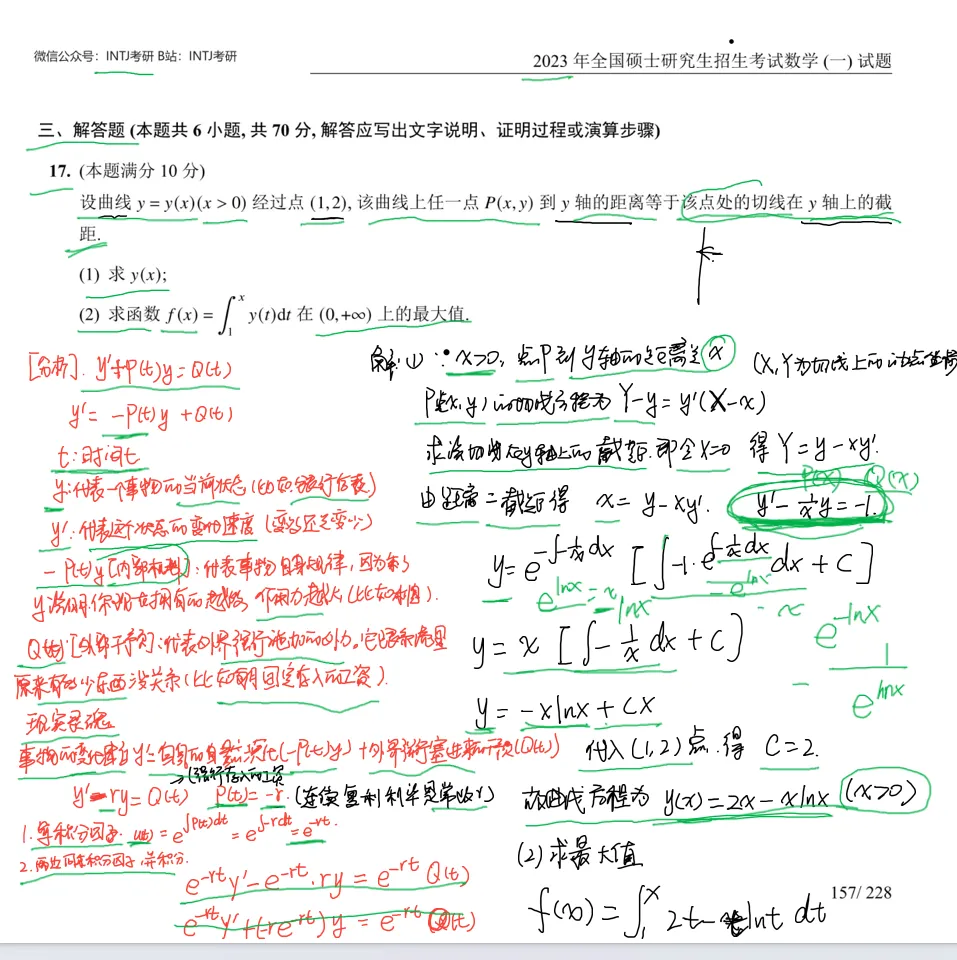 微信公众号：INTJ考研 B站：INTJ考研
2023 年全国硕士研究生招生考试数学 (一) 试题
三、解答题 (本题共 6 小题, 共 70 分, 解答应写出文字说明、证明过程或演算步骤)
17. (本题满分 10 分)
设曲线 y = y(x)(x > 0) 经过点 (1,2), 该曲线上任一点 P(x,y) 到 y 轴的距离等于该点处的切线在 y 轴上的截
距.
(1) 求 y(x);
(2) 求函数 f(x) = ∫₁ˣ y(t)dt 在 (0,+∞) 上的最大值.
[分析]. y'+P(t)y=Q(t)
y'= -P(t)y+Q(t)
t:时间t
y:代表一个事物的当前状态(比如银行存款)
y':代表这个状态的变化速度(变多还是变少)
-P(t)y[内部机制]:代表事物自身规律,因为有
y说明你现在拥有的越多,作用力越大(比如利息).
Q(t):[外部干预]:代表外界强行施加的外力,它跟系统里
原来有多少东西没关系(比如每月固定存入的工资).
现实灵魂
事物的变化率y'=自身的自然演化(-P(t)y)+外界强行塞进来的干预(Q(t))
→(强行存入的工资
y'-ry=Q(t) P(t)=-r. (连续复利利率是常数r)
1.寻积分因子. u(t)=e^∫P(t)dt =e^∫-rdt =e^-rt.
2.两边同乘积分因子,并积分.
e^-rt y'-e^-rt·ry=e^-rt Q(t)
e^-rt y'+(-re^-rt)y=e^-rt Q(t)
解:① ∵x>0, 点P到y轴的距离是x (X,Y为切线上的动点坐标
P点(x,y)的切线方程为 Y-y=y'(X-x)
求该切线在y轴上的截距.即令X=0 得 Y=y-xy'.
P(x) Q(x)
由距离=截距得 x=y-xy'. y'-1/x y=-1.
y=e^-∫-1/x dx [∫-1·e^∫-1/x dx dx+C]
e^lnx=x -lnx -e^lnx -x
e^-lnx
y=x[∫-1/x dx+C]
- 1/e^lnx
y=-xlnx+Cx
代入(1,2)点.得 C=2.
故曲线方程为 y(x)=2x-xlnx (x>0)
(2)求最大值
f(x)=∫₁ˣ 2t-tlnt dt
157/ 228